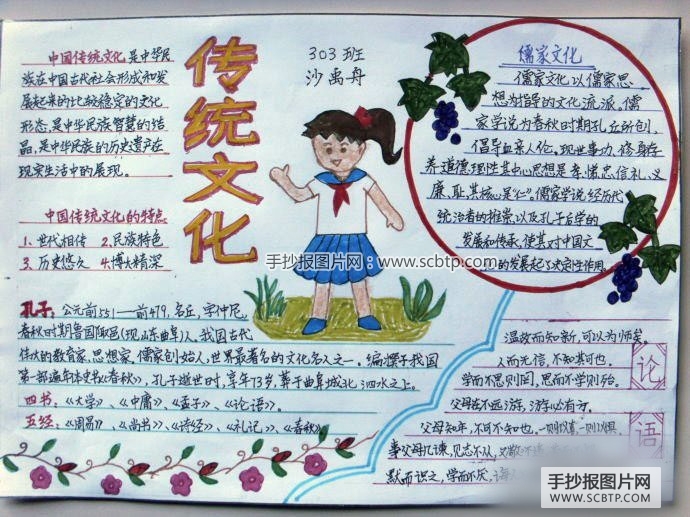 中国传统文化是中华民
族在中国古代社会形成和发
展起来的比较稳定的文化
形态,是中华民族智慧的结
晶,是中华民族的历史遗产在
现实生活中的展现。
中国传统文化的特点
1、世代相传 2、民族特色
3、历史悠久 4、博大精深
传统文化
303班
沙禹舟
儒家文化
儒家文化以儒家思
想为指导的文化流派。儒
家学说为春秋时期孔丘所创,
倡导血亲人伦。现世事功、修身存
养、道德理性其中心思想是孝、悌、忠、信、礼、义
廉、耻,其核心是“仁”。儒家学说经历代
统治者的推崇,以及孔子后学的
发展和传承,使其对中国文
的发展起了决定性作用。
手抄报图片网:www.scbtp.com
孔子:公元前551—前479,名丘,字仲尼。
春秋时期鲁国陬邑(现山东曲阜)人。我国古代
伟大的教育家,思想家,儒家创始人,世界最著名的文化名人之一。编撰了我国
第一部编年本史书《春秋》,孔子逝世时,享年73岁,葬于曲阜城北泗水之上。
四书:《大学》、《中庸》、《孟子》、《论语》。
五经:《周易》、《尚书》、《诗经》、《礼记》、《春秋》
论语
温故而知新,可以为师矣。
人而无信,不知其可也。
学而不思则罔,思而不学则殆。
父母在不远游,游必有方。
父母知年,不可不知也,一则以喜,一则以惧
事父母几谏,见志不从,又敬不
默而识之,学而不厌,
手抄报图片网
WWW.SCBTP.COM